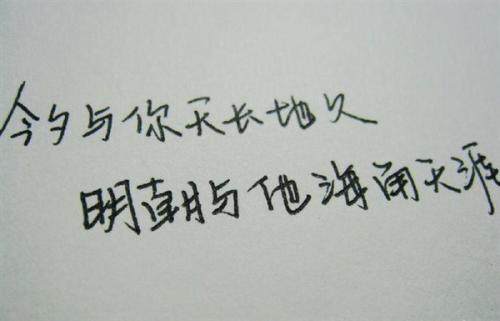 今夕与你天长地久
明朝与他海角天涯